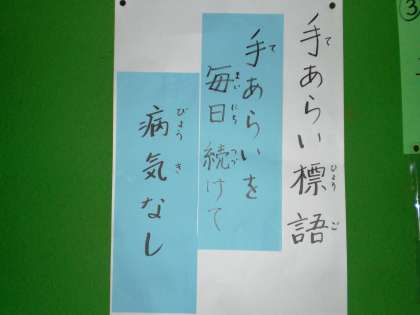 手あらい標語
手あらいを
毎日続けて
病気なし
③